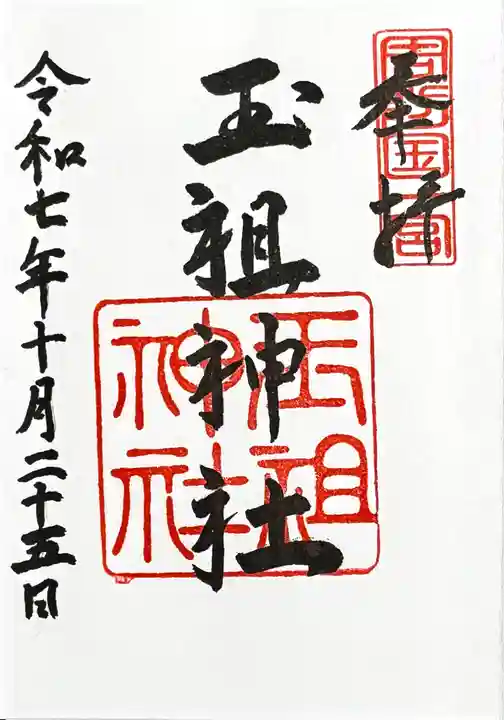 奉拝
周防国一宮
玉祖神社
玉祖神社
令和七年十月二十五日